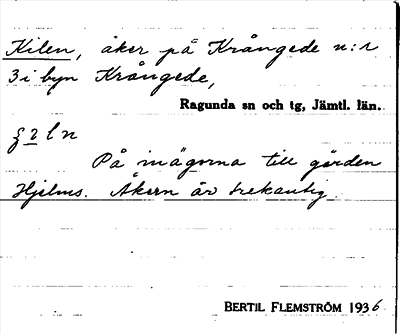 Kilen, åker på Krångede n:r
3 i byn Krångede,
Ragunda sn och tg, Jämtl. län.
På inägorna till gården
Hjelms. Åkern är trekantig.
BERTIL FLEMSTRÖM 1936.